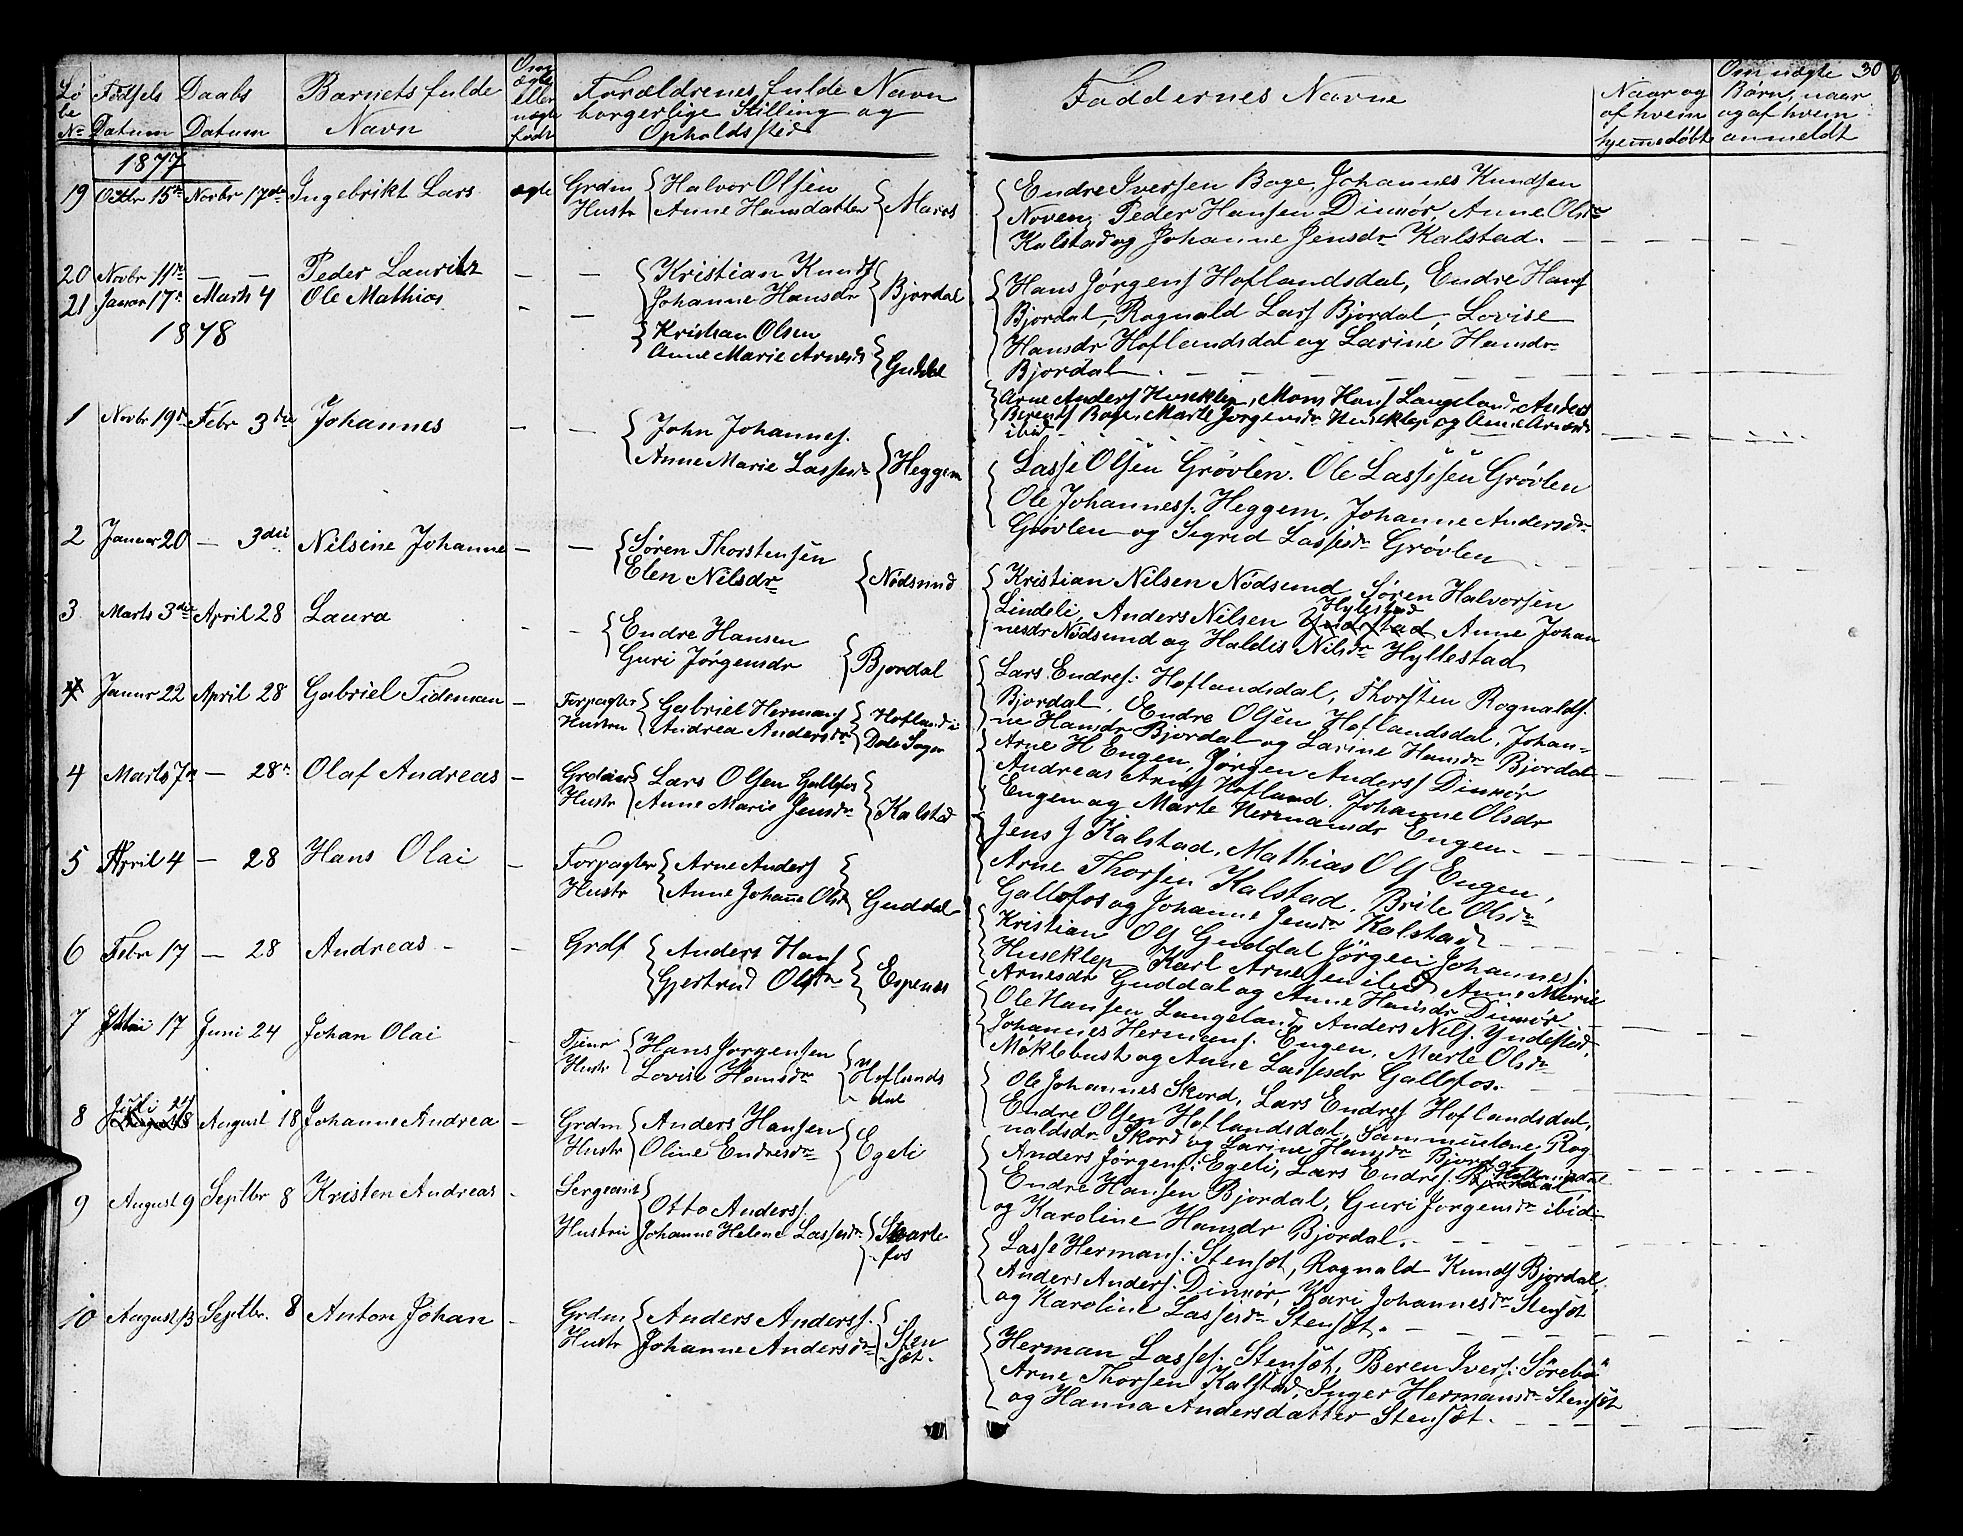 30
Löbe No | Födsels Datum | Daabs Datum | Barnets fulde Navn | Om ægte eller uægte födt | Forældrenes fulde Navn borgerlige Stilling og Opholdssted | Faddernes Navne | Naar og af hvem hjemedöbt | Om uægte Børn, naar og af hvem anmeldt
1877
19 Octbr 15de Novbr 17de Ingebrikt Lars ægte Grdm Halvor Olsen
Hustr Anne Hansdatter
Endre Iversen Bage, Johannes Knudsen
Noven, Peder Hansen Dinnör, Anne Olsdr
Kalstad og Johanne Jensdr Kalstad.
20 Novbr 11te — — Peder Lauritz — — Kristian Knuds
Johanne Hansdr Bjordal
21 Januar 17de Marts 4 Ole Mathias - — Kristian Olsen
Anne Marie Arnesdr Guddal
1878
Hans Jørgens Hoflandsdal, Endre Hans
Bjordal, Ragnald Lars Bjordal, Lovise
Hansdr Hoflandsdal og Larine Hansdr
Bjordal
Arne Anders Huseklep, Mons Hans Langeland, Anders
Berents Bage, Marte Jørgensdr Huseklep og Anne Arnesdr
ibid
1 Novbr 19de Febr 3die Johannes — — John Johannes.
Anne Marie Lassesdr Heggem
Lasse Olsen Grövlen. Ole Lassesen Grövlen
Ole Johanness. Heggem, Johanne Andersdr
Grövlen og Sigrid Lassesdr Grövlen
2 Januar 20 — 3die Nilsine Johanne — — Sören Thorstensen
Elen Nilsdr Nödsund
Kristian Nilsen Nödsund, Sören Halvorsen
Lindeli, Anders Nilsen Hyllestad Anne Johan
nesdr Nödsund og Haldis Nilsdr Hyllestad
3 Marts 3die April 28 Laura - — Endre Hansen
Guri Jørgensdr Bjordal
Lars Endres. Hoflandsdal, Thorsten Ragnalds.
Bjordal, Endre Olsen Hoflandsdal, Johan-
ne Hansdr Bjordal og Larine Hansdr Bjordal
4 Januar 22 April 28 Gabriel Tideman — Forpagter Gabriel Hermans
Hustru Andrea Andersdr Hofland i
Dale Sogn
Arne H Engen, Jørgen Anderss Dinnör
Andreas Arnes Hofland. Johanne Olsdr
Engen og Marte Hermansdr Engen.
4 Marts 7de — 28de Olaf Andreas — Lars Olsen Gallefos
Hustr Anne Marie Jensdr Kalstad
Jens J Kalstad, Mathias Ols Engen,
Arne Thorsen Kalstad. Brite Olsdr
Gallefos og Johanne Jensdr Kalstad
5 April 4 — 28 Hans Olai — Forpagter Arne Anders
Hustr Anne Johanne Olsd Guddal
Kristian Ols Guddal Jörgen Johannes.
Huseklep Karl Arnesen ibid Anne Marie
Arnesdr Guddal og Anne Hansdr Dinnör
6 Febr 17 — 28 Andreas - — Anders Hans
Gjertrud Olsdr Espenes
Ole Hansen Langeland, Anders Nils. Yndestad,
Johannes Hermans. Engen, Marte Olsdr
Möklebust og Anne Lassesdr Gallefos.
7 17 Juni 24 Johan Olai - Hans Jorgensen
Hustr Lovise Hansdr Hoflands
dal
Ole Johannes Skord, Lars Endres Hoflandsdal,
Endre Olsen Hoflandsdal, Rag
naldsdr Skord og Larine Hansdr Bjordal
8 Juli 24 August 18 Johanne Andrea — Grdm Anders Hansen
Hustr Oline Endresdr Egeli
Anders Jörgens. Egeli, Lars Endres.
Endre Hansen Bjordal, Guri Jorgensdr ibid.
og Karoline Hansdr Bjordal.
9 August 9 Septbr 8 Kristen Andreas - Sergeant Otto Anderss.
Hustru Johanne Helene Lassesdr Svarte
fos
Lasse Hermans. Stensæt, Ragnald Knuds Bjordal,
Anders Anders. Dinnör, Kari Johannesdr Stensæt
og Karoline Lassesdr Stensæt.
10 August 13 Septbr. 8 Anton Johan - Grdm Anders Anderss.
Hustr Johanne Andersdr Sten
sæt.
Herman Lasses. Stensæt, Beren Ivers. Sörebö
Arne Thorsen Kalstad, Inger Hermansdr Stensæt
og Hanna Andersdatter Stensæt.